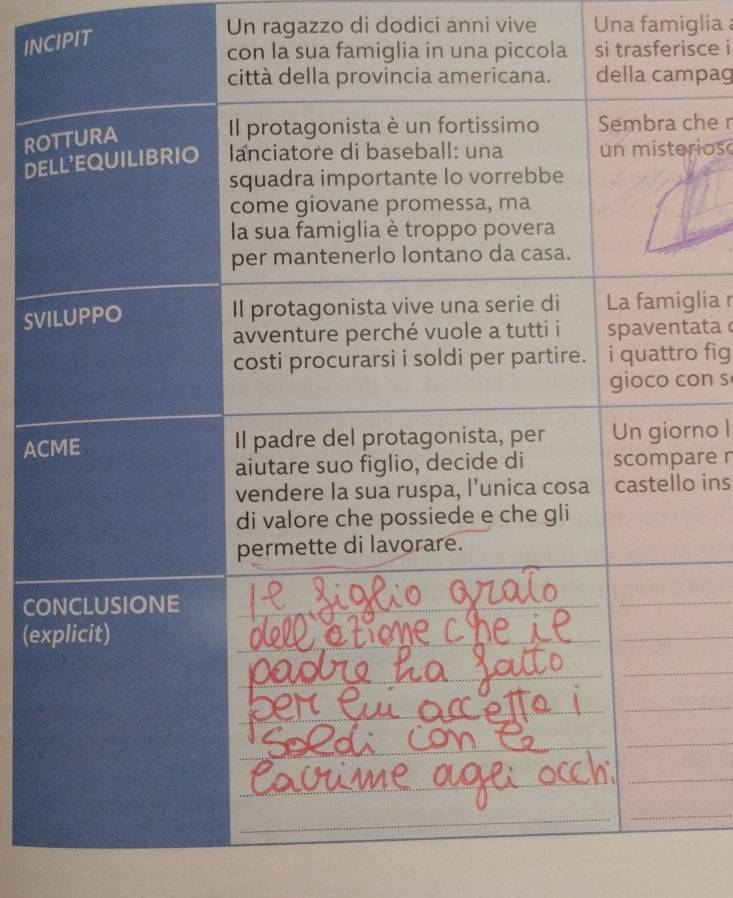 INCIPIT
Un ragazzo di dodici anni vive
con la sua famiglia in una piccola
città della provincia americana.
Una famiglia
si trasferisce i
della campag
ROTTURA
DELL'EQUILIBRIO
Il protagonista è un fortissimo
lanciatore di baseball: una
squadra importante lo vorrebbe
come giovane promessa, ma
la sua famiglia è troppo povera
per mantenerlo lontano da casa.
Sembra che
un misterioso
SVILUPPO
Il protagonista vive una serie di
avventure perché vuole a tutti i
costi procurarsi i soldi per partire.
La famiglia
spaventata
i quattro fig
gioco con s
ACME
Il padre del protagonista, per
aiutare suo figlio, decide di
vendere la sua ruspa, l'unica cosa
di valore che possiede e che gli
permette di lavorare.
Un giorno l
scompare
castello ins
CONCLUSIONE
(explicit)
le figlio grato
dell'etione che ie
padre ha fatto
per lui accetta i
soldi con le
lacrime agli occhi